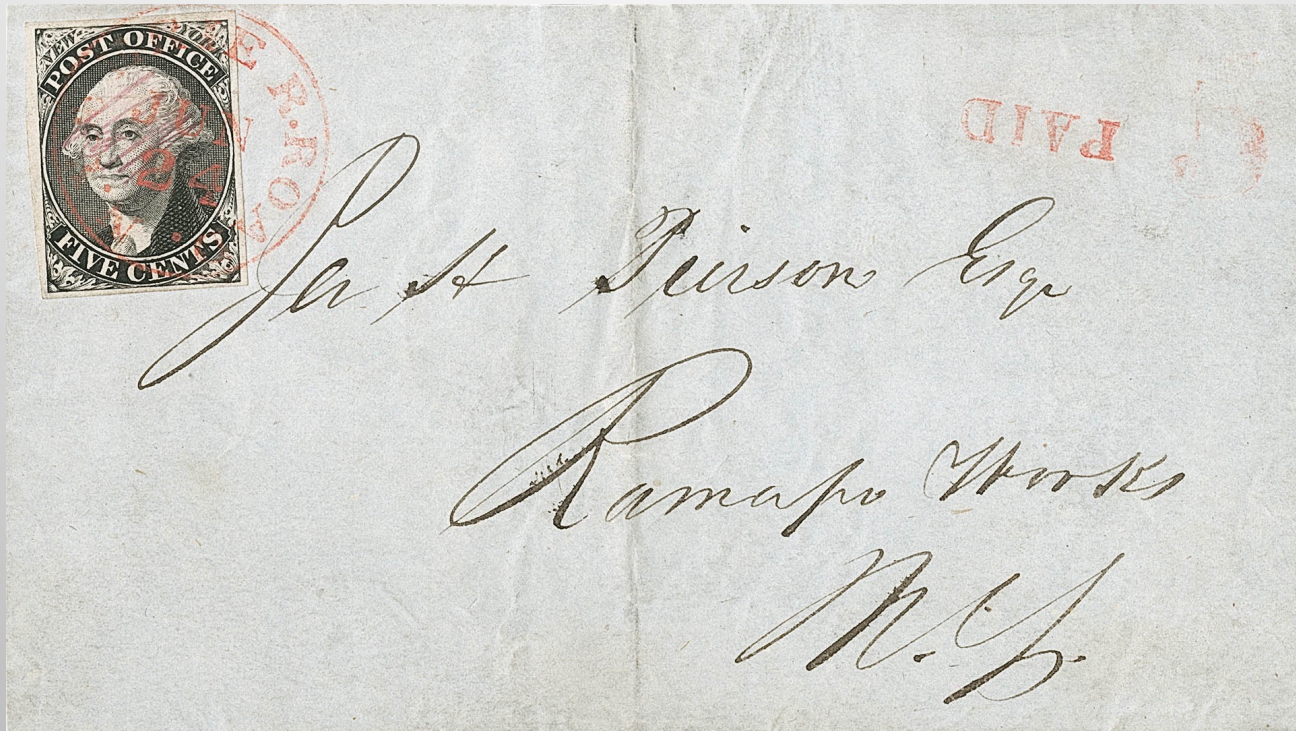 NEW YORK
POST OFFICE
FIVE CENTS
E R.ROA
PAID
Jer H Pierson Esqr
Ramapo Works
N.Y.